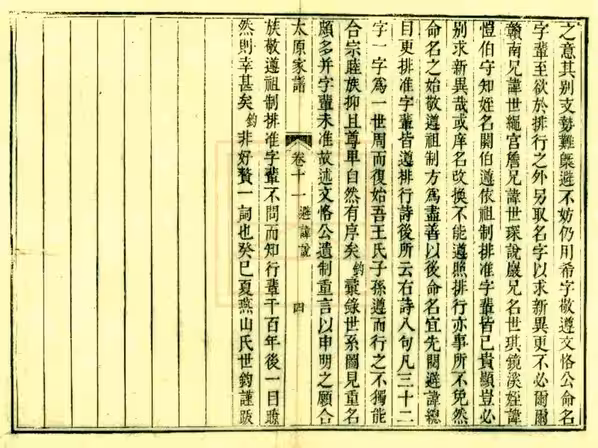 之意其別支勢難槩避不妨仍用希字敬遵文恪公命名
字輩至欲於排行之外另取名字以求新異更不必爾爾
贛南兄諱世繩宮詹兄諱世琛說巖兄名世琪鏡溪姪諱
愷伯守知姪名開伯遵依祖制排准字輩皆已貴顯豈必
別求新異哉或庠名改換不能遵照排行亦事所不免然
命名之始敬遵祖制方為盡善以後命名宜先閱避諱總
目更排准字輩皆遵排行詩後所云右詩八句凡三十二
字一字為一世周而復始吾王氏子孫遵而行之不獨能
合宗睦族抑且尊卑自然有序矣鈞彙錄世系圖見重名
頗多并字輩未准故述文恪公遺制重言以申明之願合
太原家譜 卷十一 避諱說 四
族敬遵祖制排准字輩不問而知行輩千百年後一目瞭
然則幸甚矣鈞非好贅一詞也癸巳夏燕山氏世鈞謹跋